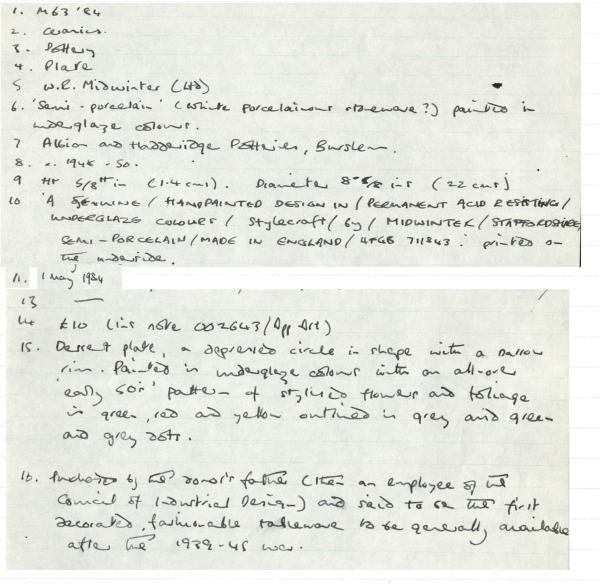 1. M63'84
2. Ceramics.
3. Pottery
4. Plate
5 W.R. Midwinter (Ltd)
6. 'Semi-porcelain' (white porcelainous stoneware?) painted in
underglaze colours.
7 Albion and Hadderidge Potteries, Burslem.
8. c. 1945 - 50.
9 Ht 5/8th in (1.4 cms). Diameter 8 5/8 ins (22 cms)
10 'A GENUINE / HANDPAINTED DESIGN IN / PERMANENT ACID RESISTING /
UNDERGLAZE COLOURS / Stylecraft / by / MIDWINTER / STAFFORDSHIRE
SEMI-PORCELAIN / MADE IN ENGLAND / 711843.' printed on
the underside.
11. 1 May 1984
13 —
14 £10 (ins note 002643/App Art)
15. Dessert plate, a depressed circle in shape with a narrow
rim. Painted in underglaze colours with an all-over
'early 50s' pattern of stylised flowers and foliage
in green, red and yellow outlined in grey and green
and grey dots.
16. Purchased by the donor's father (then an employee of the
Council of Industrial Design) and said to be the first
decorated, fashionable tableware to be generally available
after the 1939-45 war.